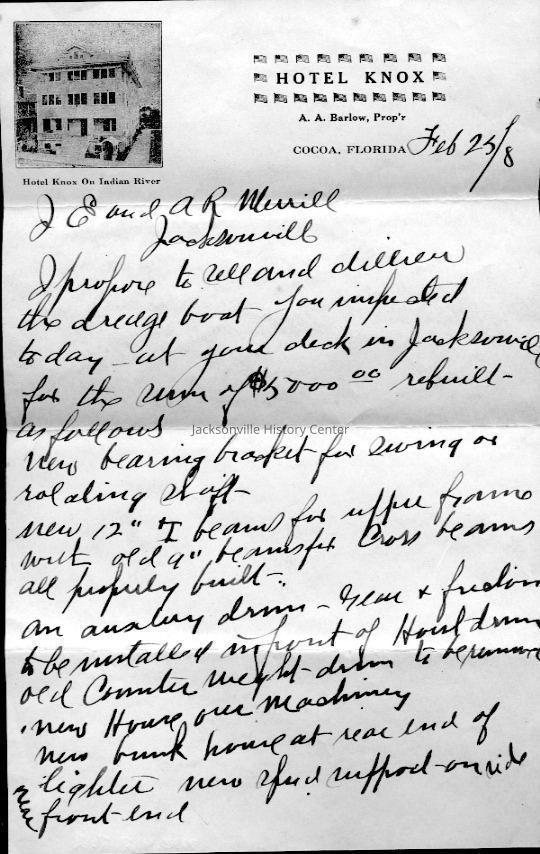 HOTEL KNOX
A. A. Barlow, Prop'r
COCOA, FLORIDA Feb 25/8
Hotel Knox On Indian River
J E and A R Merrill
Jacksonvill
I propose to sell and diliver
the dredge boat you inspected
today at your dock in Jacksonville
for the sum of $5000 00 rebuilt -
as follows
Jacksonville History Center
New bearing bracket for swing or
rotating shaft -
new 12" I beams for upper frame
with old 9" beams for Cross beams
all properly built -
an auxilary drum - gear & friction
to be installed in front of Hoist drum
old Counter weight drum to be removed
new House over Machinery
new bunk house at rear end of
lighter new spud support on side
near front end